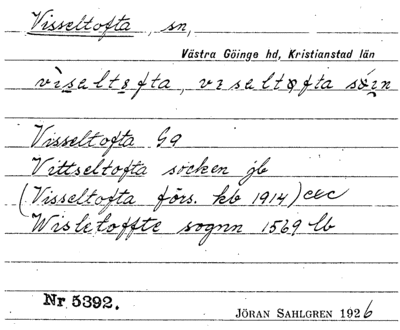 Visseltofta, sn,
Västra Göinge hd, Kristianstad län
Visseltofta G9
Vittseltofta socken jb
(Visseltofta förs. kb 1914) etc
Wisletoffte sognn 1569 lb
Nr 5392.
JÖRAN SAHLGREN 1926